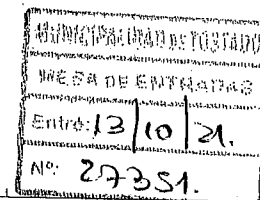 MUNICIPALIDAD DE TOSTADO
MESA DE ENTRADAS
Entró: 13/10/21.
Nº: 27351.